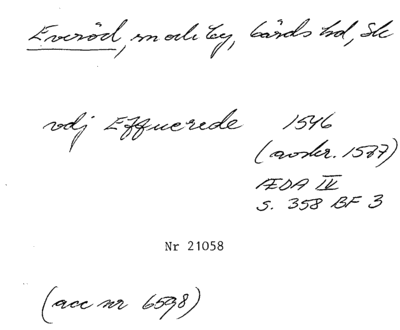 Everöd, sn och by, Gärds hd, Sk
vdj Effuerede 1546
(avskr. 1587)
ÆDA IV
s. 358 BF 3
Nr 21058
(acc nr 6598)